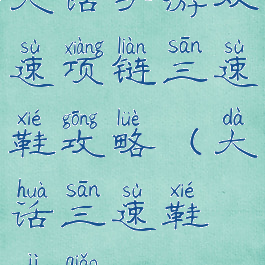 大话手游双
sù xiàng liàn sān sù
速项链三速
xié gōng lüè dà
鞋攻略（大
huà sān sù xié
话三速鞋
jì qiǎo